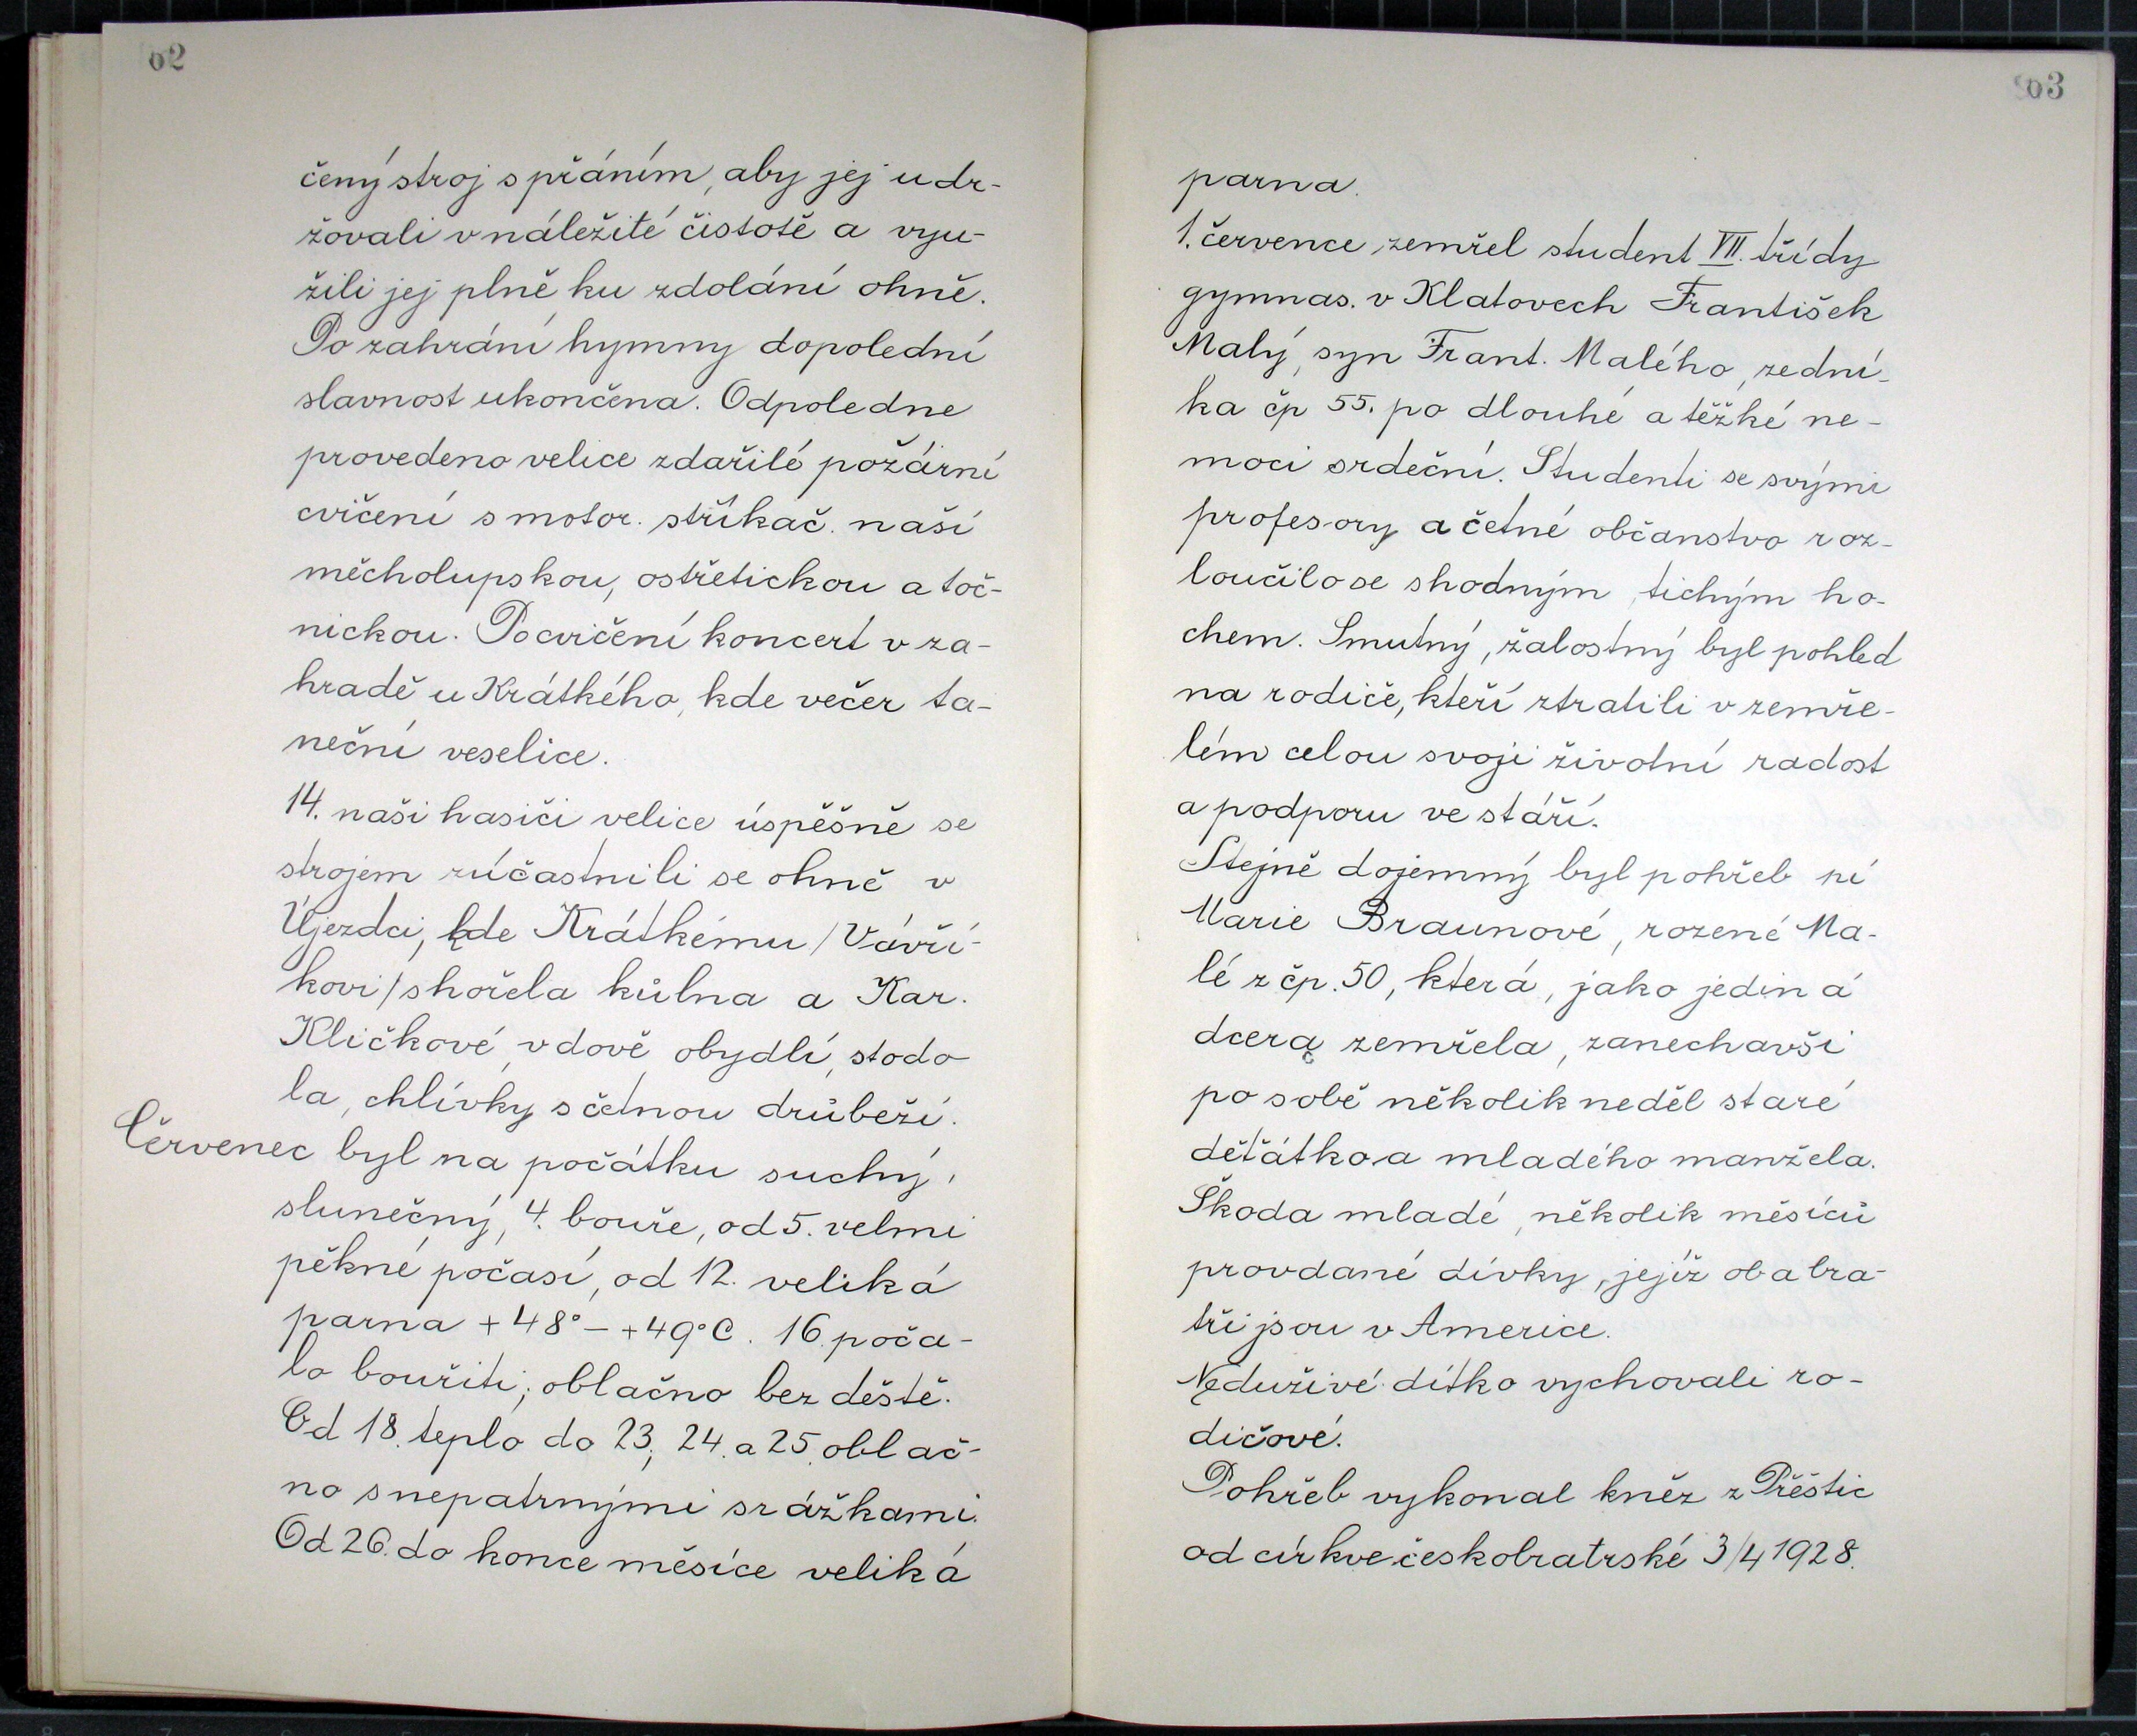 62
čený stroj s přáním, aby jej udr-
žovali v náležité čistotě a vyu-
žili jej plně ku zdolání ohně.
Po zahrání hymny dopolední
slavnost ukončena. Odpoledne
provedeno velice zdařilé požární
cvičení s motor. stříkač. naší
měcholupskou, ostřetickou a toč-
nickou. Po cvičení koncert v za-
hradě u Krátkého, kde večer ta-
neční veselice.
14. naši hasiči velice úspěšně se
strojem zúčastnili se ohně v
Újezdci, kde Krátkému /Vávří-
kovi/ shořela kůlna a Kar.
Kličkové, vdově, obydlí, stodo
la, chlívky s četnou drůbeží.
Červenec byl na počátku suchý,
slunečný, 4. bouře, od 5. velmi
pěkné počasí, od 12. veliká
parna + 48° - + 49° C. 16. poča-
lo bouřiti, oblačno bez deště.
Od 18. teplo do 23., 24. a 25. oblač-
no s nepatrnými srážkami.
Od 26. do konce měsíce veliká
63
parna.
1. července zemřel student VII. třídy
gymnas. v Klatovech František
Malý, syn Frant. Malého, zední-
ka čp 55. po dlouhé a těžké ne-
moci srdeční. Studenti se svými
profesory a četné občanstvo roz-
loučilo se s hodným, tichým ho-
chem. Smutný, žalostný byl pohled
na rodiče, kteří ztratili v zemře-
lém celou svoji životní radost
a podporu ve stáří.
Stejně dojemný byl pohřeb pí
Marie Braunové, rozené Ma-
lé z čp. 50, která, jako jediná
dcera zemřela, zanechavši
po sobě několik neděl staré
děťátko a mladého manžela.
Škoda mladé, několik měsíců
provdané dívky, jejíž oba bra-
tři jsou v Americe.
Neduživé dítko vychovali ro-
dičové.
Pohřeb vykonal kněz z Přeštic
od církve českobratrské 3/4 1928.